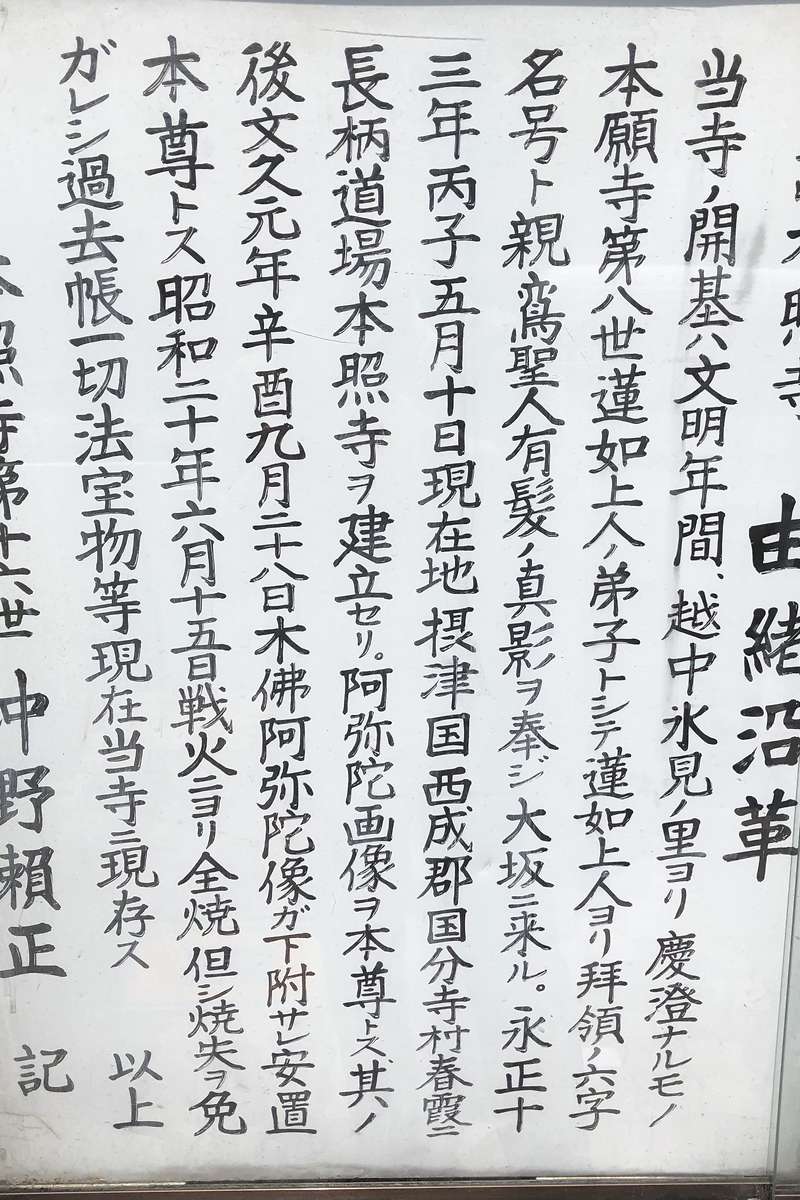 照寺 由緒沿革
当寺ノ開基ハ文明年間、越中氷見ノ里ヨリ慶澄ナルモノ
本願寺第八世蓮如上人ノ弟子トシテ蓮如上人ヨリ拝領ノ六字
名号ト親鸞聖人有髪ノ真影ヲ奉ジ大坂ニ来ル。永正十
三年丙子五月十日現在地摂津国西成郡国分寺村春霞ニ
長柄道場本照寺ヲ建立セリ。阿弥陀画像ヲ本尊トス、其ノ
後文久元年辛酉九月二十八日木佛阿弥陀像ガ下附サレ安置
本尊トス昭和二十年六月十五日戦火ニヨリ全焼但シ焼失ヲ免
ガレシ過去帳一切法宝物等現在当寺ニ現存ス 以上
本照寺第十六世 中野賴正 記